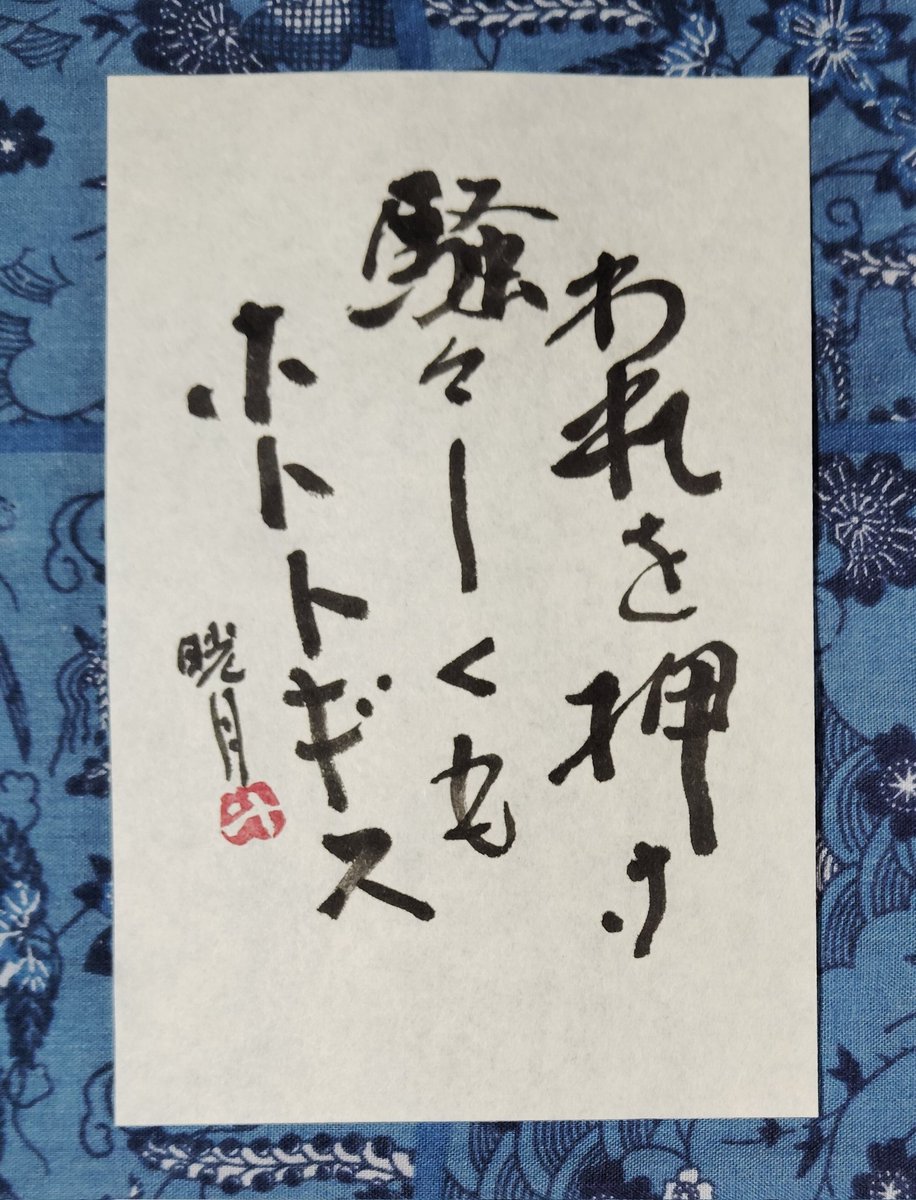 われを押す
騒々しくも
ホトトギス
晄月